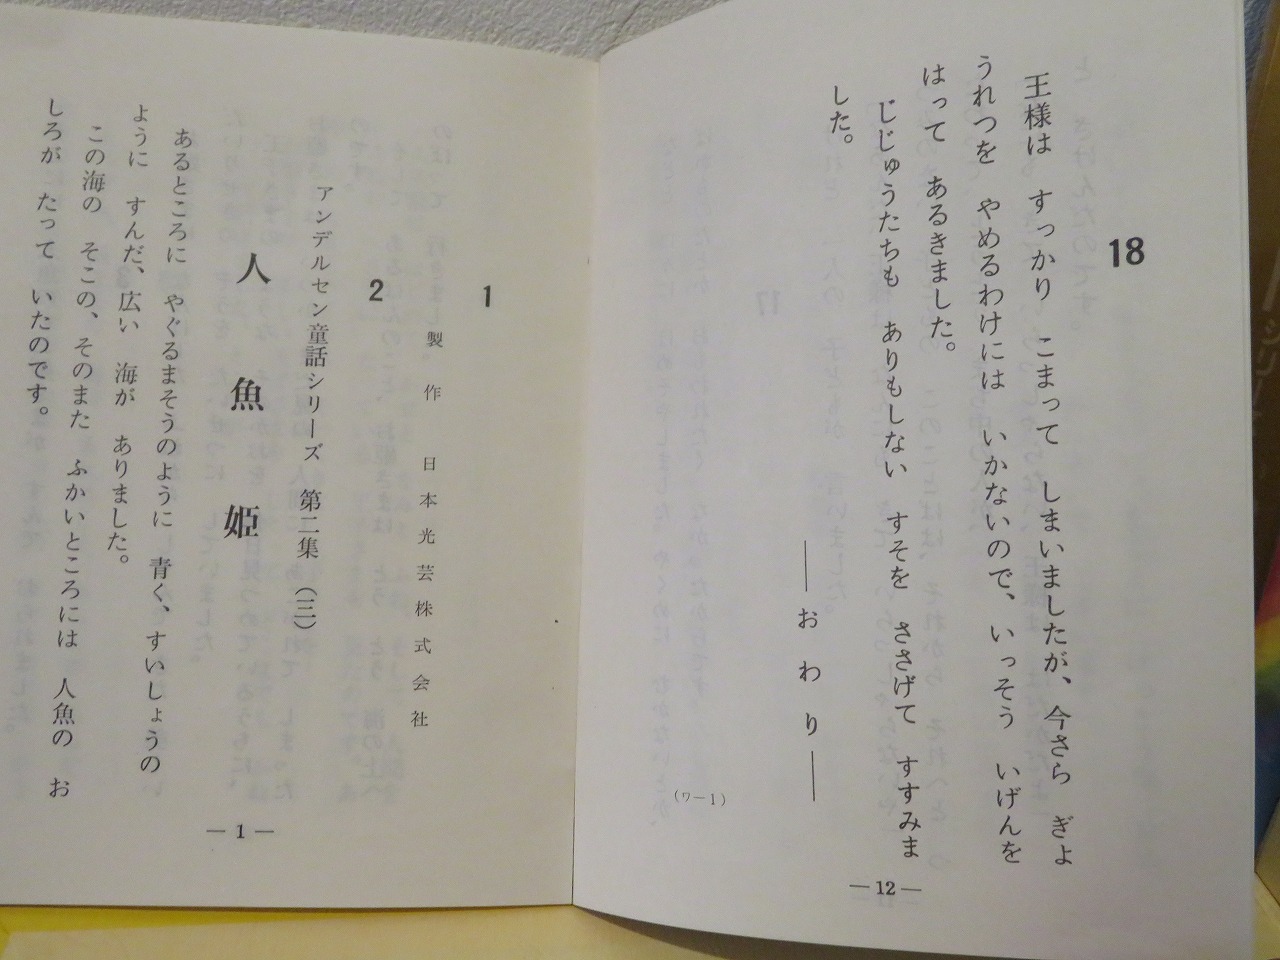 18
王様は　すっかり　こまって　しまいましたが、今さら　ぎょ
うれつを　やめるわけには　いかないので、いっそう　いげんを
はって　あるきました。
じじゅうたちも　ありもしない　すそを　ささげて　すすみま
した。
――おわり――
(ワ－1)
―12―
1
製作　日本光芸株式会社
2
アンデルセン童話シリーズ　第二集（三）
人魚姫
あるところに　やぐるまそうのように　青く、すいしょうの
ように　すんだ、広い　海が　ありました。
この海の　そこの、そのまた　ふかいところには　人魚の　お
しろが　たって　いたのです。
―1―